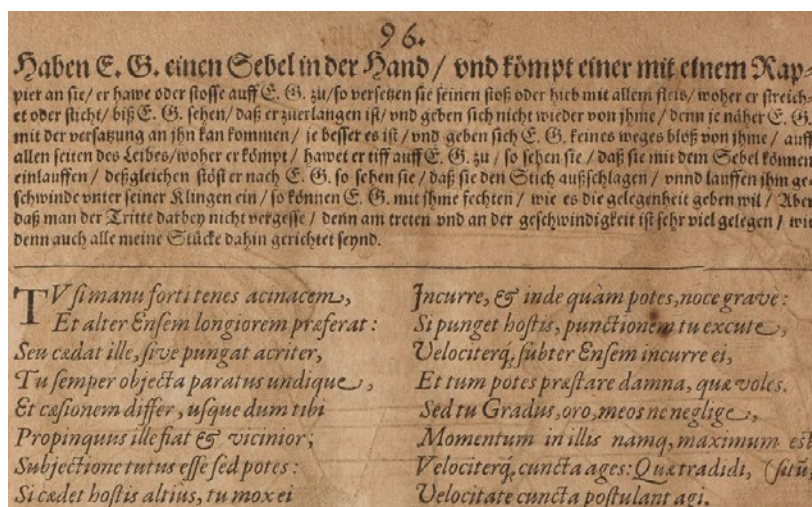 96.
Haben E. G. einen Sebel in der Hand / vnd kömpt einer mit einem Rap⸗
pier an sie / er hawe oder stosse auff E. G. zu / so versetzen sie seinen stoß oder hieb mit allem fleis / woher er streich⸗
et oder sticht / biß E. G. sehen / daß er zuerlangen ist / vnd geben sich nicht wieder von jhme / denn je näher E. G.
mit der versatzung an jhn kan kommen / je besser es ist / vnd geben sich E. G. keines weges bloß von jhme / auff
allen seiten des Leibes / woher er kömpt / hawet er tiff auff E. G. zu / so sehen sie / daß sie mit dem Sebel können
einlauffen / deßgleichen stöst er nach E. G. so sehen sie / daß sie den Stich außschlagen / vnnd lauffen jhm ge⸗
schwinde vnter seiner Klingen ein / so können E. G. mit jhme fechten / wie es die gelegenheit geben wil / Aber
daß man der Tritte darbey nicht vergesse / denn am treten vnd an der geschwindigkeit ist sehr viel gelegen / wie
denn auch alle meine Stücke dahin gerichtet seynd.
TV si manu forti tenes acinacem,
Et alter Ensem longiorem præferat:
Seu cædat ille, sive pungat acriter,
Tu semper objecta paratus undique,
Et cæsionem differ, usque dum tibi
Propinquus ille fiat & vicinior;
Subjectione tutus esse sed potes:
Si cædet hostis altius, tu mox ei
Incurre, & inde quàm potes, noce grave:
Si punget hostis, punctionem tu excute,
Velociterq́; subter Ensem incurre ei,
Et tum potes præstare damna, quæ voles.
Sed tu Gradus, oro, meos ne neglige,
Momentum in illis namq, maximum est
Velociterq́; cuncta ages: Quæ tradidi, (sitũ,
Velocitate cuncta postulant agi.